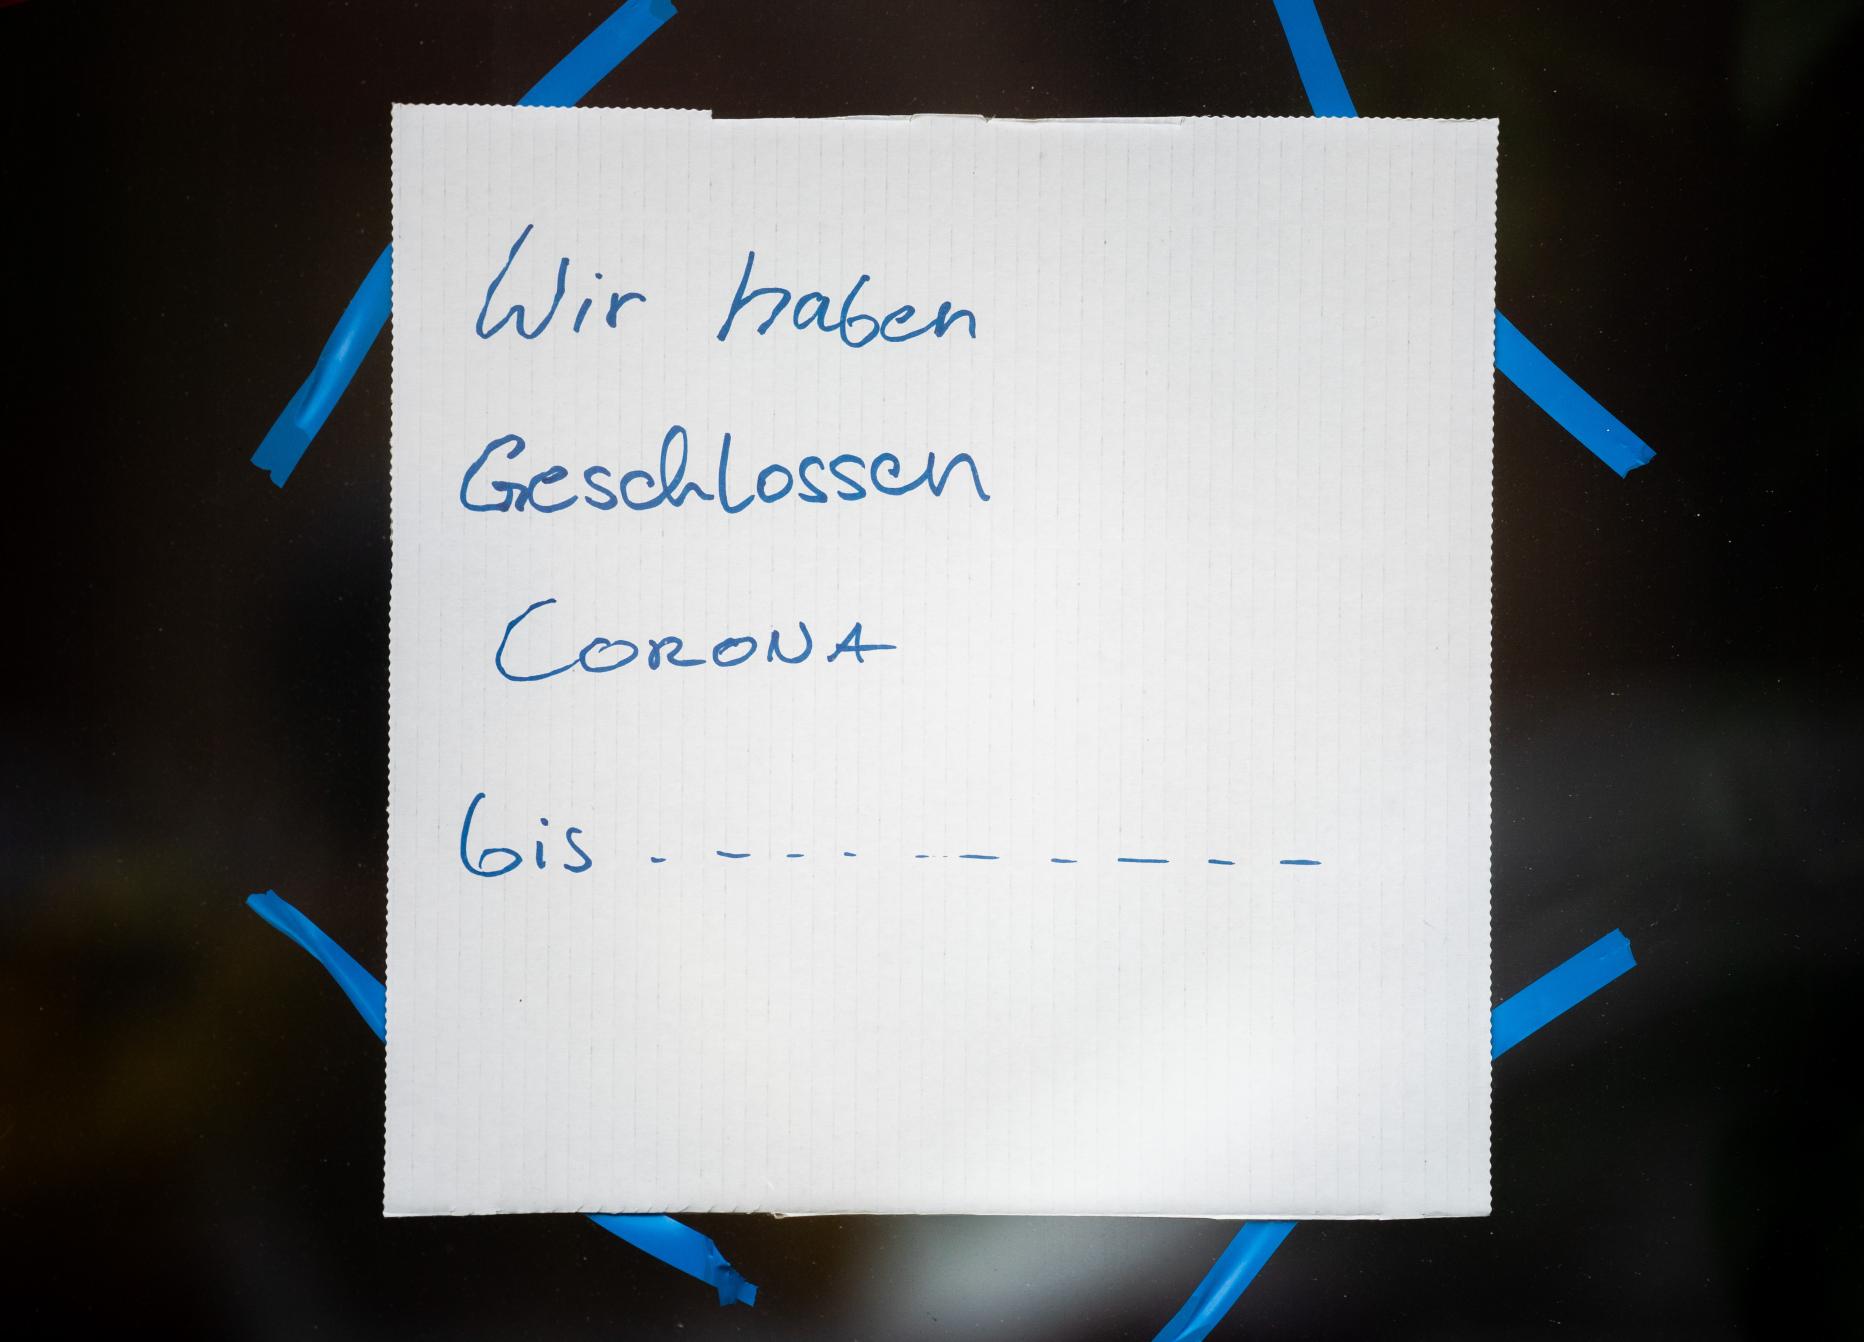 Wir haben
Geschlossen
CORONA
bis . - - - - - - - - - -